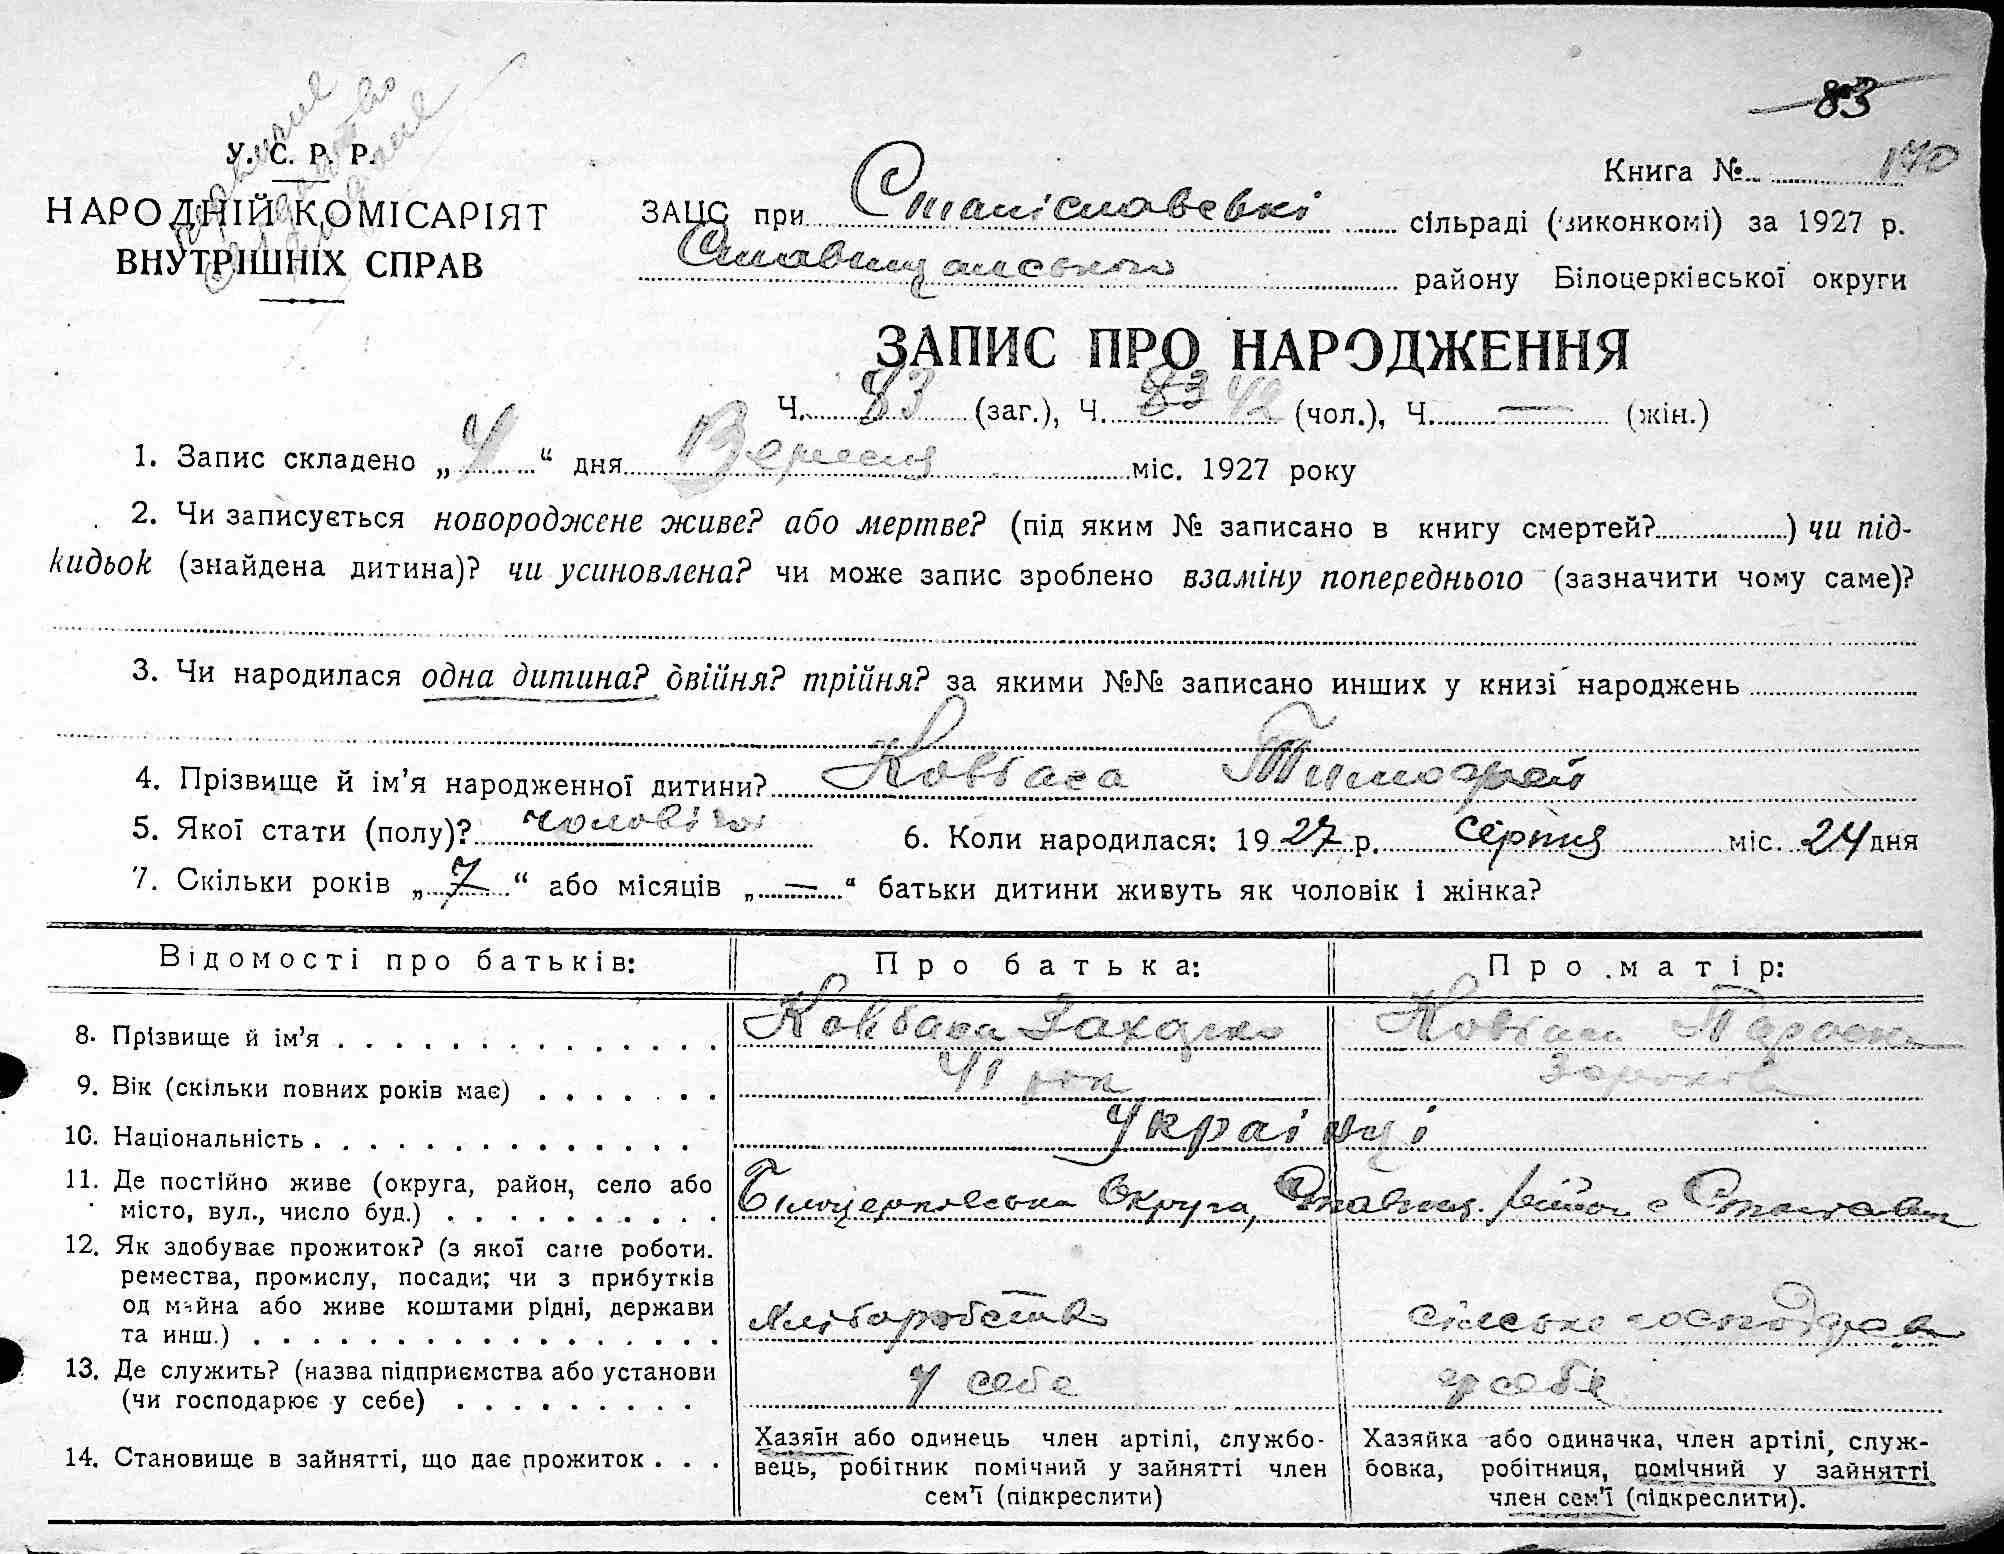 83
Книга № 140
У. С. Р. Р.
НАРОДНІЙ КОМІСАРІЯТ
ВНУТРІШНІХ СПРАВ
ЗАЦС при Станіславській сільраді (виконкомі) за 1927 р.
Ставищанського району Білоцерківської округи
ЗАПИС ПРО НАРОДЖЕННЯ
Ч. 83 (заг.), Ч. 83 42 (чол.), Ч. — (жін.)
1. Запис складено „ 4 “ дня Вересня міс. 1927 року
2. Чи записується новороджене живе? або мертве? (під яким № записано в книгу смертей? ) чи під-
кидьок (знайдена дитина)? чи усиновлена? чи може запис зроблено взаміну попереднього (зазначити чому саме)?
3. Чи народилася одна дитина? двійня? трійня? за якими №№ записано инших у книзі народжень
4. Прізвище й ім’я народженної дитини? Ковбаса Тимофей
5. Якої стати (полу)? чоловічої 6. Коли народилася: 1927 р. серпня міс. 24 дня
7. Скільки років „ 7 “ або місяців „ — “ батьки дитини живуть як чоловік і жінка?
Відомості про батьків: Про батька: Про матір:
8. Прізвище й ім’я Ковбаса Ковбаса Параска
9. Вік (скільки повних років має) 41 рок
10. Національність Украінці
11. Де постійно живе (округа, район, село або
місто, вул., число буд.) Білоцерківська Округа, Ставищ. район с
12. Як здобуває прожиток? (з якої саме роботи.
ремества, промислу, посади; чи з прибутків
од майна або живе коштами рідні, держави
та инш.) Хліборобство сільське господарство
13. Де служить? (назва підприємства або установи
(чи господарює у себе) у себе у себе
14. Становище в зайнятті, що дає прожиток
Хазяїн або одинець член артілі, службо-
вець, робітник помічний у зайнятті член
сем’ї (підкреслити)
Хазяйка або одиначка, член артілі, служ-
бовка, робітниця, помічний у зайнятті
член сем’ї (підкреслити).